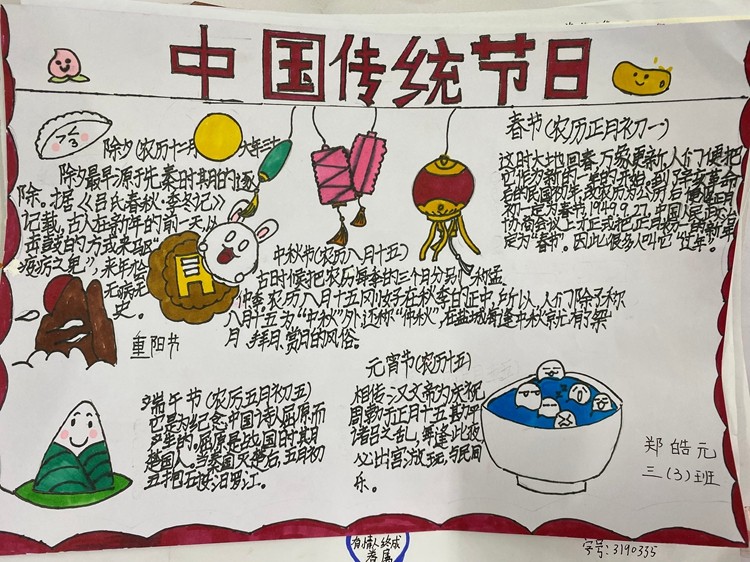 中国传统节日
春节(农历正月初一)
这时大地回春,万象更新,人们便把
它作为新的一年的开始。到了辛亥革命
初一定为春节。1949.9.27,中国人民政治
协商会议上才正式把正月初一的新年
定为“春节”。因此很多人叫它“过年”。
除夕(农历十二月 大年三十
除夕最早源于先秦时期的“逐
除”。据《吕氏春秋·季冬记》
记载,古人在新年的前一天以
击鼓的方式来
疫疠之鬼”,来年才会
无病无
灾。
重阳节
中秋节(农历八月十五)
古时候把农历每季的三个月分
农历八月十五 在秋季的正中,所以,人们除了称
八月十五为“中秋”外还称“仲秋”,在盐城每逢中秋就有祭
月、拜月、赏月的风俗。
端午节(农历五月初五)
它是为纪念中国诗人屈原而
来的,屈原是战国时期
楚国人。当秦国灭楚后,五月初
五抱石投汨罗江。
元宵节(农历十五)
相传:汉文帝为庆祝
周勃于正月十五勘平
诸吕之乱,每逢此夜
必出宫游玩,与民同
乐。
郑皓元
三(3)班
有情人终成
眷属
学号:3190335